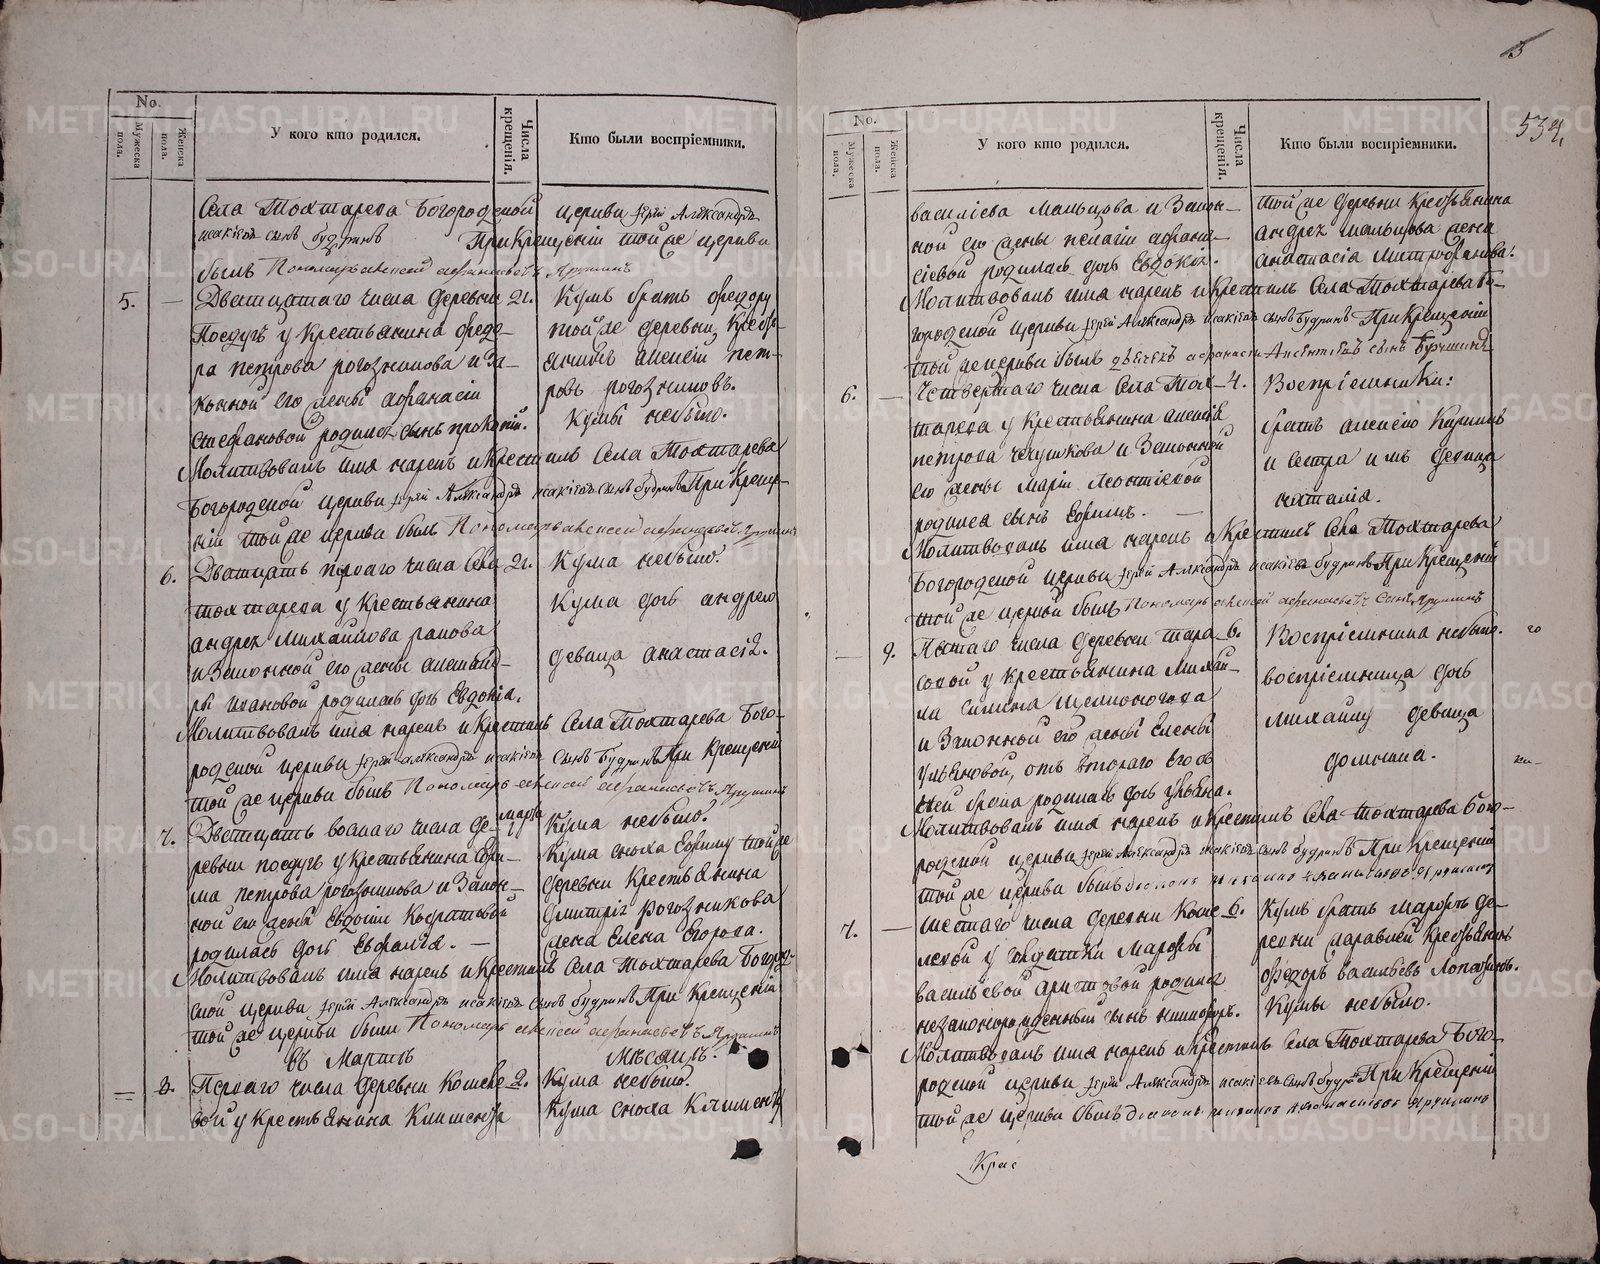 No.
Мужеска пола.
Женска пола.
У кого кто родился.
Числа крещенія.
Кто были воспріемники.
Села Тохтарева Богородской церкви Іерей Александръ
Исакіевъ сынъ Будринъ При Крещеніи той же церкви
былъ Пономарь Алексей Афанасьевъ
5. — Двацатаго числа деревни 21. Кумъ братъ Федору
Поедугъ у крестьянина Федо- той же деревни Кресть-
ра Петрова Рогозникова и За- янинъ Алексей Пет-
конной его жены Афанасіи ровъ Рогозниковъ.
Стефановой родился сынъ Прокопій. Кумы небыло.
Молитвовалъ имя нарекъ и Крестилъ Села Тохтарева
Богородской церкви Іерей Александръ Исакіевъ сынъ Будринъ При Креще-
ніи той же церкви былъ Пономарь Алексей Афанасьевъ
6. Дватцать перваго числа Села 21. Кума небыло.
Тохтарева у Крестьянина Кума дочь Андрея
Андрея Михайлова Панова девица Анастасія.
и Законной его жены
родилась дочь Евдокія.
Молитвовалъ имя нарекъ и Крестилъ Села Тохтарева Бого-
родской церкви Іерей Александръ Исакіевъ сынъ Будринъ При Крещеніи
той же церкви былъ Пономарь Алексей Афанасьевъ
7. Дватцать восмаго числа де- Марта 1. Кума небыло.
ревни Поедугъ у Крестьянина Ефи- Кума сноха Ефиму той же
ма Петрова Рогозникова и Закон- деревни Крестьянина
ной его жены Евдокіи Кодратовой Димитрія Рогозникова
родилась дочь Евфалія. — жена Елена Егорова.
Молитвовалъ имя нарекъ и Крестилъ Села Тохтарева Богород-
ской церкви Іерей Александръ Исакіевъ сынъ Будринъ При Крещеніи
той же церкви были Пономарь Алексей Афанасьевъ
Въ Мартѣ Мѣсяцѣ.
8. Перваго числа деревни Кошеле- 2. Кума небыло.
вой у Крестьянина Климента Кума сноха Клименту
5
534
No.
Мужеска пола.
Женска пола.
У кого кто родился.
Числа крещенія.
Кто были воспріемники.
Василіева Мальцова и Закон- той же деревни Крестьянина
ной его жены Пелагіи Афана- Андрея Мальцова жена
сіевой родилась дочь Евдокія. Анастасія Митрофанова.
Молитвовалъ имя нарекъ и Крестилъ Села Тохтарева Бо-
городской церкви Іерей Александръ Исакіевъ сынъ Будринъ При Крещеніи
той же церкви былъ дьячекъ сынъ
6. — Четвертаго числа Села Тох- 4. Воспріемники:
тарева у Крестьянина Алексія братъ Алексею Кирилъ
Петрова Чечушкова и Законной и Сестра имъ девица
его жены Маріи Леонтіевой Наталія.
родился сынъ Ефимъ. —
Молитвовалъ имя нарекъ и Крестилъ Села Тохтарева
Богородской церкви Іерей Александръ Исакіевъ Будринъ При Крещеніи
той же церкви былъ Пономарь Алексей Афанасьевъ сынъ
— 9. Пятаго числа деревни Тара- 6. Воспріемника небыло.
совой у Крестьянина Михаи- воспріемница дочь
ла Силина Щелконогова Михаилу девица
и Законной его жены Елены Домника.
Ульяновой, отъ втораго его
брака родилась дочь Ульяна.
Молитвовалъ имя нарекъ и Крестилъ Села Тохтарева Бого-
родской церкви Іерей Александръ Исакіевъ сынъ Будринъ При Крещеніи
той же церкви былъ
7. — Шестаго числа деревни Коше- 6. Кумъ братъ Марфѣ де-
левой у Солдатки Марфы ревни Крестьянинъ
Васильевой родился Федоръ Васильевъ
незаконорожденный сынъ Никифоръ. Кумы небыло.
Молитвовалъ имя нарекъ и Крестилъ Села Тохтарева Бого-
родской церкви Іерей Александръ Исакіевъ сынъ Будринъ При Крещеніи
той же церкви былъ
METRIKI.GASO-URAL.RU